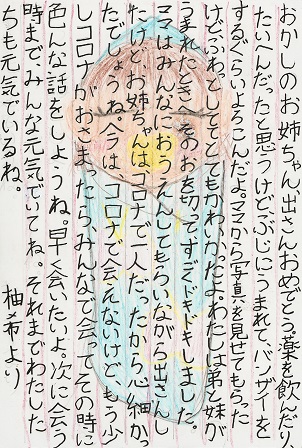 おかしのお姉ちゃん出さんおめでとう。薬を飲んだり
たいへんだったと思うけど、ぶじにうまれて、バンザイーを
するぐらいよろこんだよ。ママから写真を見せてもらった
けど、ふわっとしててとてもかわいかったよ。わたしは弟と妹が
うまれたとき、へそのおを切って、すごくドキドキしました。
ママはみんなにおうえんしてもらいながら出さんし
たけど、お姉ちゃんは、コロナで一人だったから心細か
ったでしょうね。今は、コロナで会えないけど、もう少
しコロナがおさまったら、みんなで会って、その時に
色んな話をしようね。早く会いたいよ。次に会う
時まで、みんな元気でいてね。それまでわたした
ちも元気でいるね。
柚希より